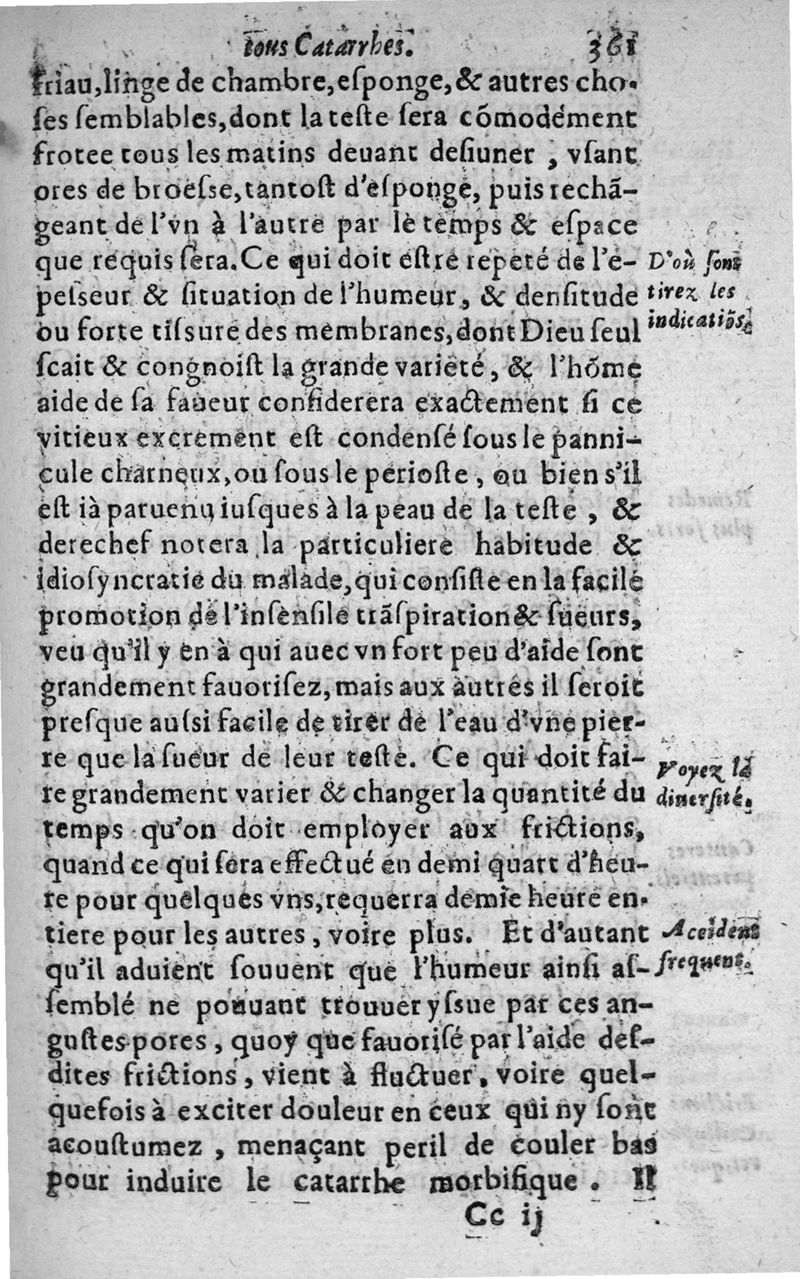 tous Catarrhes. 361
friau,linge de chambre,eſponge,& autres cho-
ſes ſemblables,dont la teſte ſera cõmodément
frotee tous les matins deuant deſiuner , vſant
ores de broeſſe,tantoſt d'eſponge, puis rechã-
geant de l'vn à l'autre par le temps & eſpace
que requis ſera.Ce qui doit eſtre repeté de l'e-
peſſeur & ſituation de l'humeur, & denſitude
ou forte tiſsure des membranes,dont Dieu ſeul
ſcait & congnoiſt la grande varieté, & l'hõme
aide de ſa faueur conſiderera exactement ſi ce
vitieux excrement eſt condenſé ſous le panni-
cule charneux,ou ſous le perioſte , ou bien s'il
eſt ià paruenu iuſques à la peau de la teſte , &
derechef notera la particuliere habitude &
idioſyncratie du malade,qui conſiſte en la facile
promotion de l'inſenſile trãſpiration& ſueurs,
veu qu'il y en à qui auec vn fort peu d'aide ſont
grandement fauoriſez, mais aux autres il ſeroit
preſque auſsi facile de tirer de l'eau d'vne pier-
re que la ſueur de leur teſte. Ce qui doit fai-
re grandement varier & changer la quantité du
temps qu'on doit employer aux frictions,
quand ce qui ſera effectué en demi quart d'heu-
re pour quelques vns,requerra demie heure en-
tiere pour les autres , voire plus. Et d'autant
qu'il aduient ſouuent que l'humeur ainſi aſ-
ſemblé ne pouuant trouuer yſsue par ces an-
guſtes pores , quoy que fauoriſé par l'aide deſ-
dites frictions , vient à fluctuer, voire quel-
quefois à exciter douleur en ceux qui ny ſont
acouſtumez , menaçant peril de couler bas
pour induire le catarrhe morbifique . Il
Cc ij
D'où ſont
tirez les
indicatiõs.
Voyez la
diuerſité.
Accident
frequent.